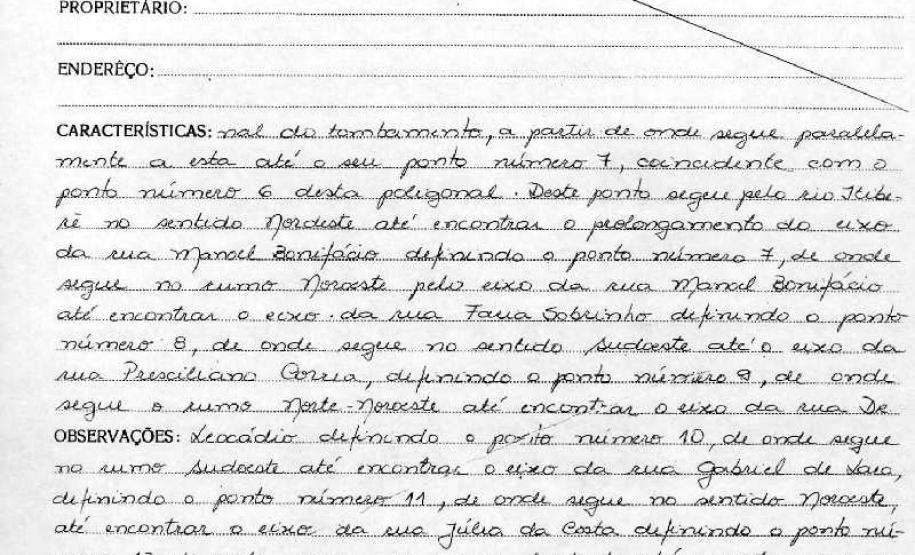 PROPRIETÁRIO:
ENDERÊÇO:
CARACTERÍSTICAS: nal do tombamento, a partir de onde segue paralela-
mente a esta até o seu ponto número 7, coincidente com o
ponto número 6 desta poligonal. Deste ponto segue pelo rio Itibe-
rê no sentido Nordeste até encontrar o prolongamento do eixo
da rua Manoel Bonifácio definindo o ponto número 7, de onde
segue no rumo Noroeste pelo eixo da rua Manoel Bonifácio
até encontrar o eixo da rua Faria Sobrinho definindo o ponto
número 8, de onde segue no sentido Sudoeste até o eixo da
rua Presciliano Correa, definindo o ponto número 9, de onde
segue o rumo Norte-Noroeste até encontrar o eixo da rua
OBSERVAÇÕES: Leocádio definindo o ponto número 10, de onde segue
no rumo Sudoeste até encontrar o eixo da rua Gabriel de Lara,
definindo o ponto número 11, de onde segue no sentido Noroeste,
até encontrar o eixo da rua Júlia da Costa definindo o ponto nú-